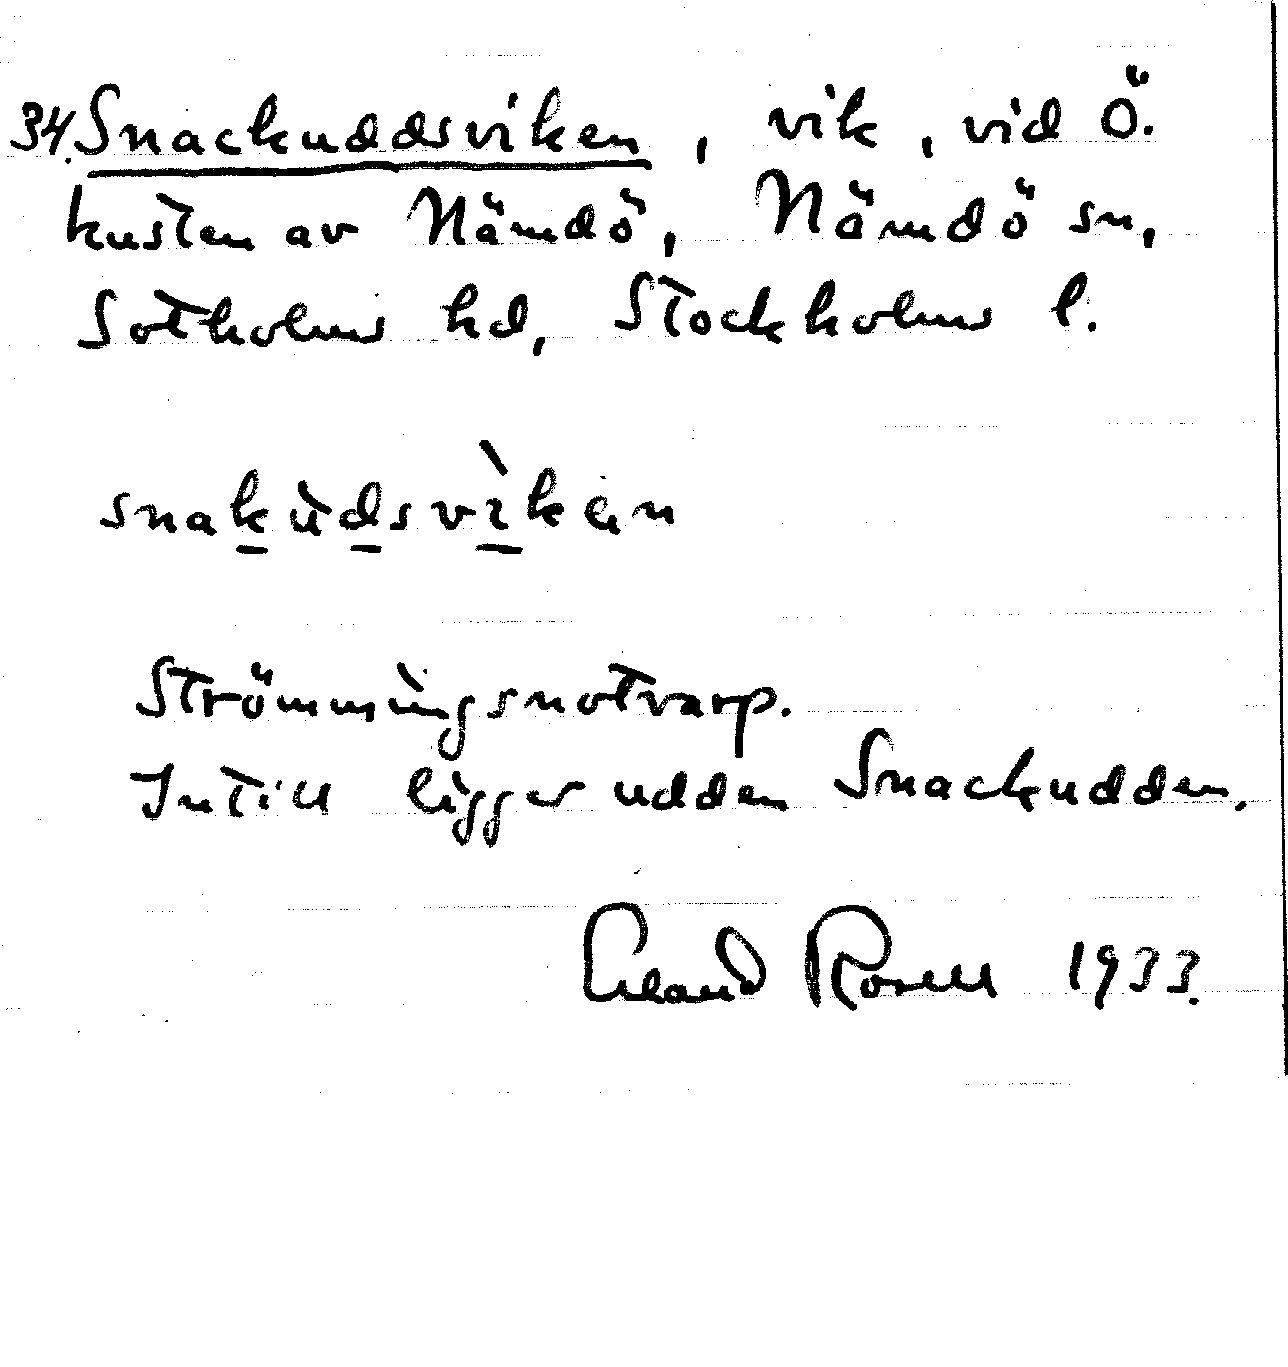 34. Snackuddsviken, vik, vid Ö.
kusten av Nämdö, Nämdö sn,
Sotholms hd, Stockholms l.
snakùdsvìkan
Strömmingsnotvarp.
Intill ligger udden Snackudden.
Erland Rosell 1933.